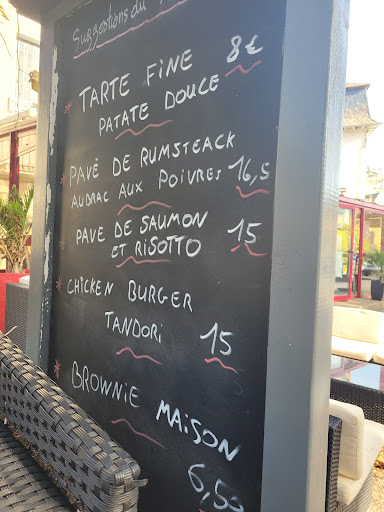 Suggestions du
* TARTE FINE 8€
PATATE DOUCE
* PAVÉ DE RUMSTEACK
AUBRAC AUX POIVRES 16,5
* PAVE DE SAUMON
ET RISOTTO 15
* CHICKEN BURGER
TANDORI 15
* BROWNIE MAISON
6,50